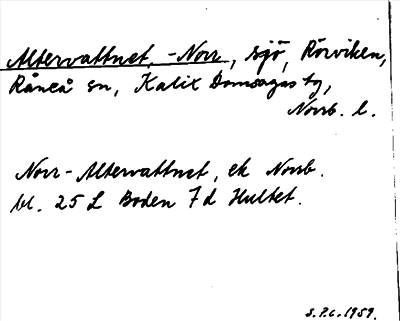 Altervattnet, -Norr, sjö, Rörviken,
Råneå sn, Kalix Domsagas tg,
Norrb. l.
Norr-Altervattnet, ek Norrb.
bl. 25 L Boden 7d Hultet.
S.P.L. 1959.